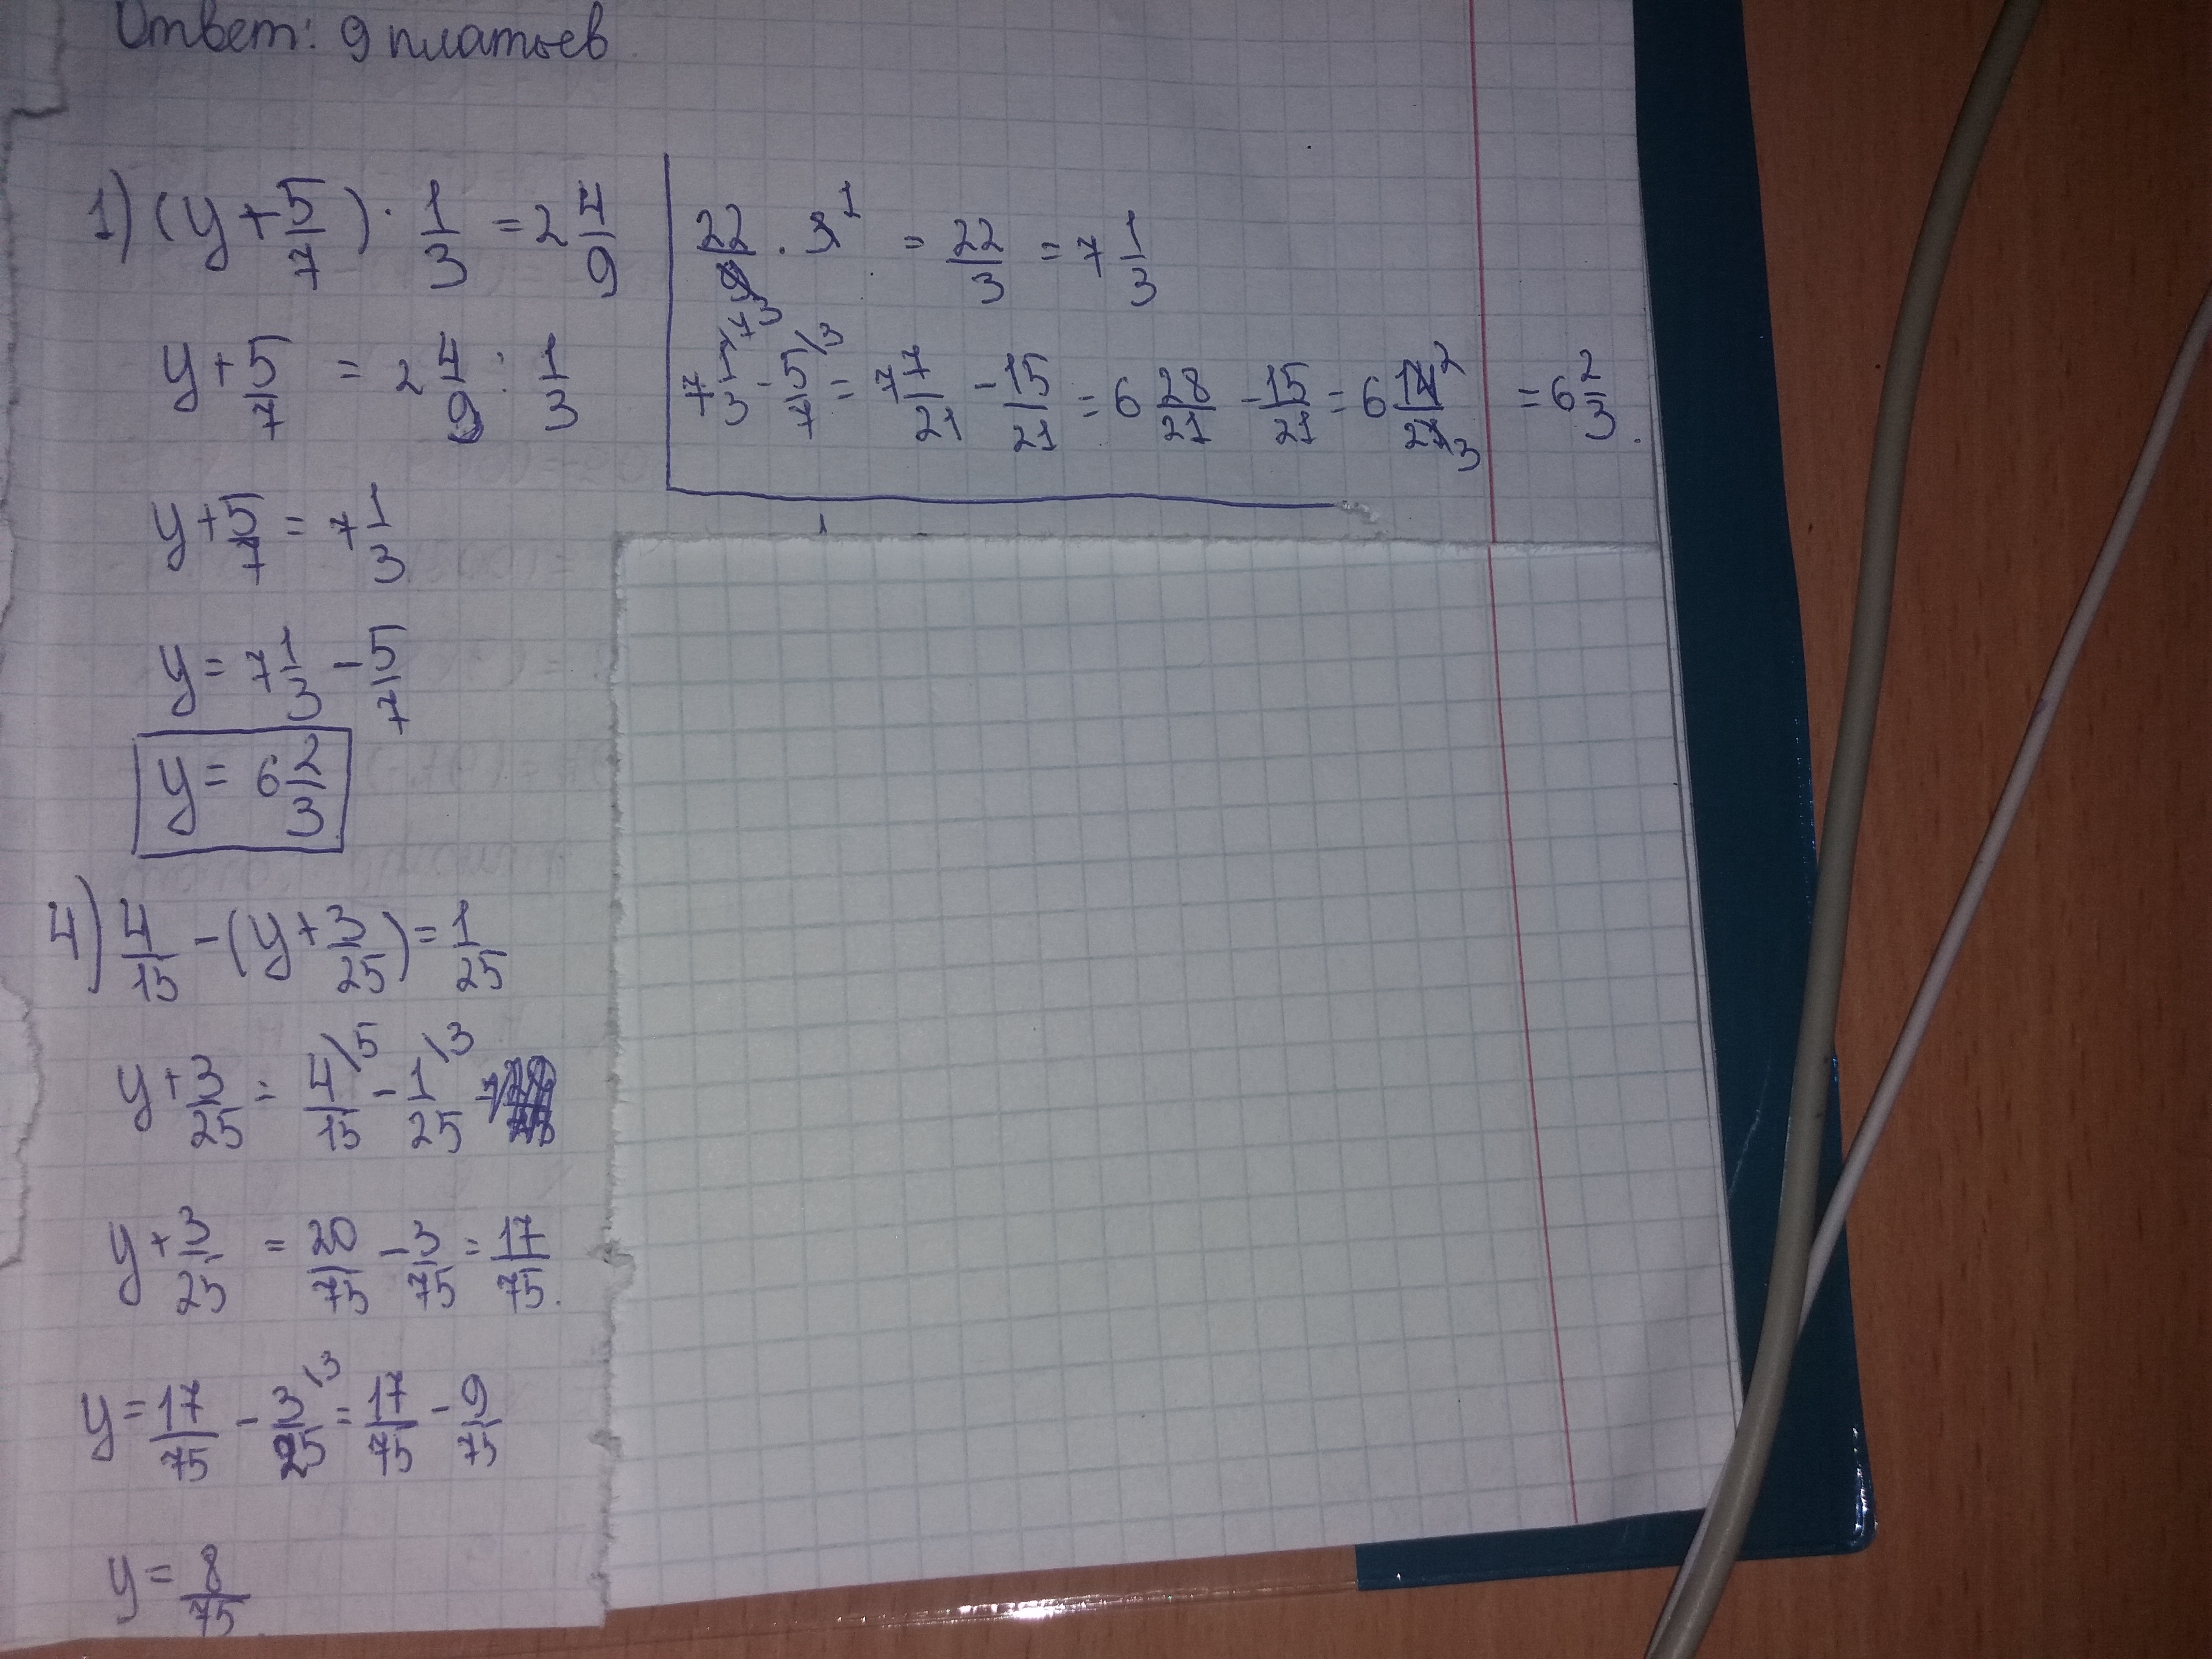 Ответ: 9 платьев.
1) (y + 5/7) · 1/3 = 2 4/9
y + 5/7 = 2 4/9 : 1/3
y + 5/7 = 7 1/3
y = 7 1/3 - 5/7
y = 6 2/3
22/9 3 · 3 1 = 22/3 = 7 1/3
7 1/3 \7 - 5/7 \3 = 7 7/21 - 15/21 = 6 28/21 - 15/21 = 6 14/21 2 3 = 6 2/3.
4) 4/15 - (y + 3/25) = 1/25
y + 3/25 = 4/15 \5 - 1/25 \3
y + 3/25 = 20/75 - 3/75 = 17/75.
y = 17/75 - 3/25 \3 = 17/75 - 9/75
y = 8/75.